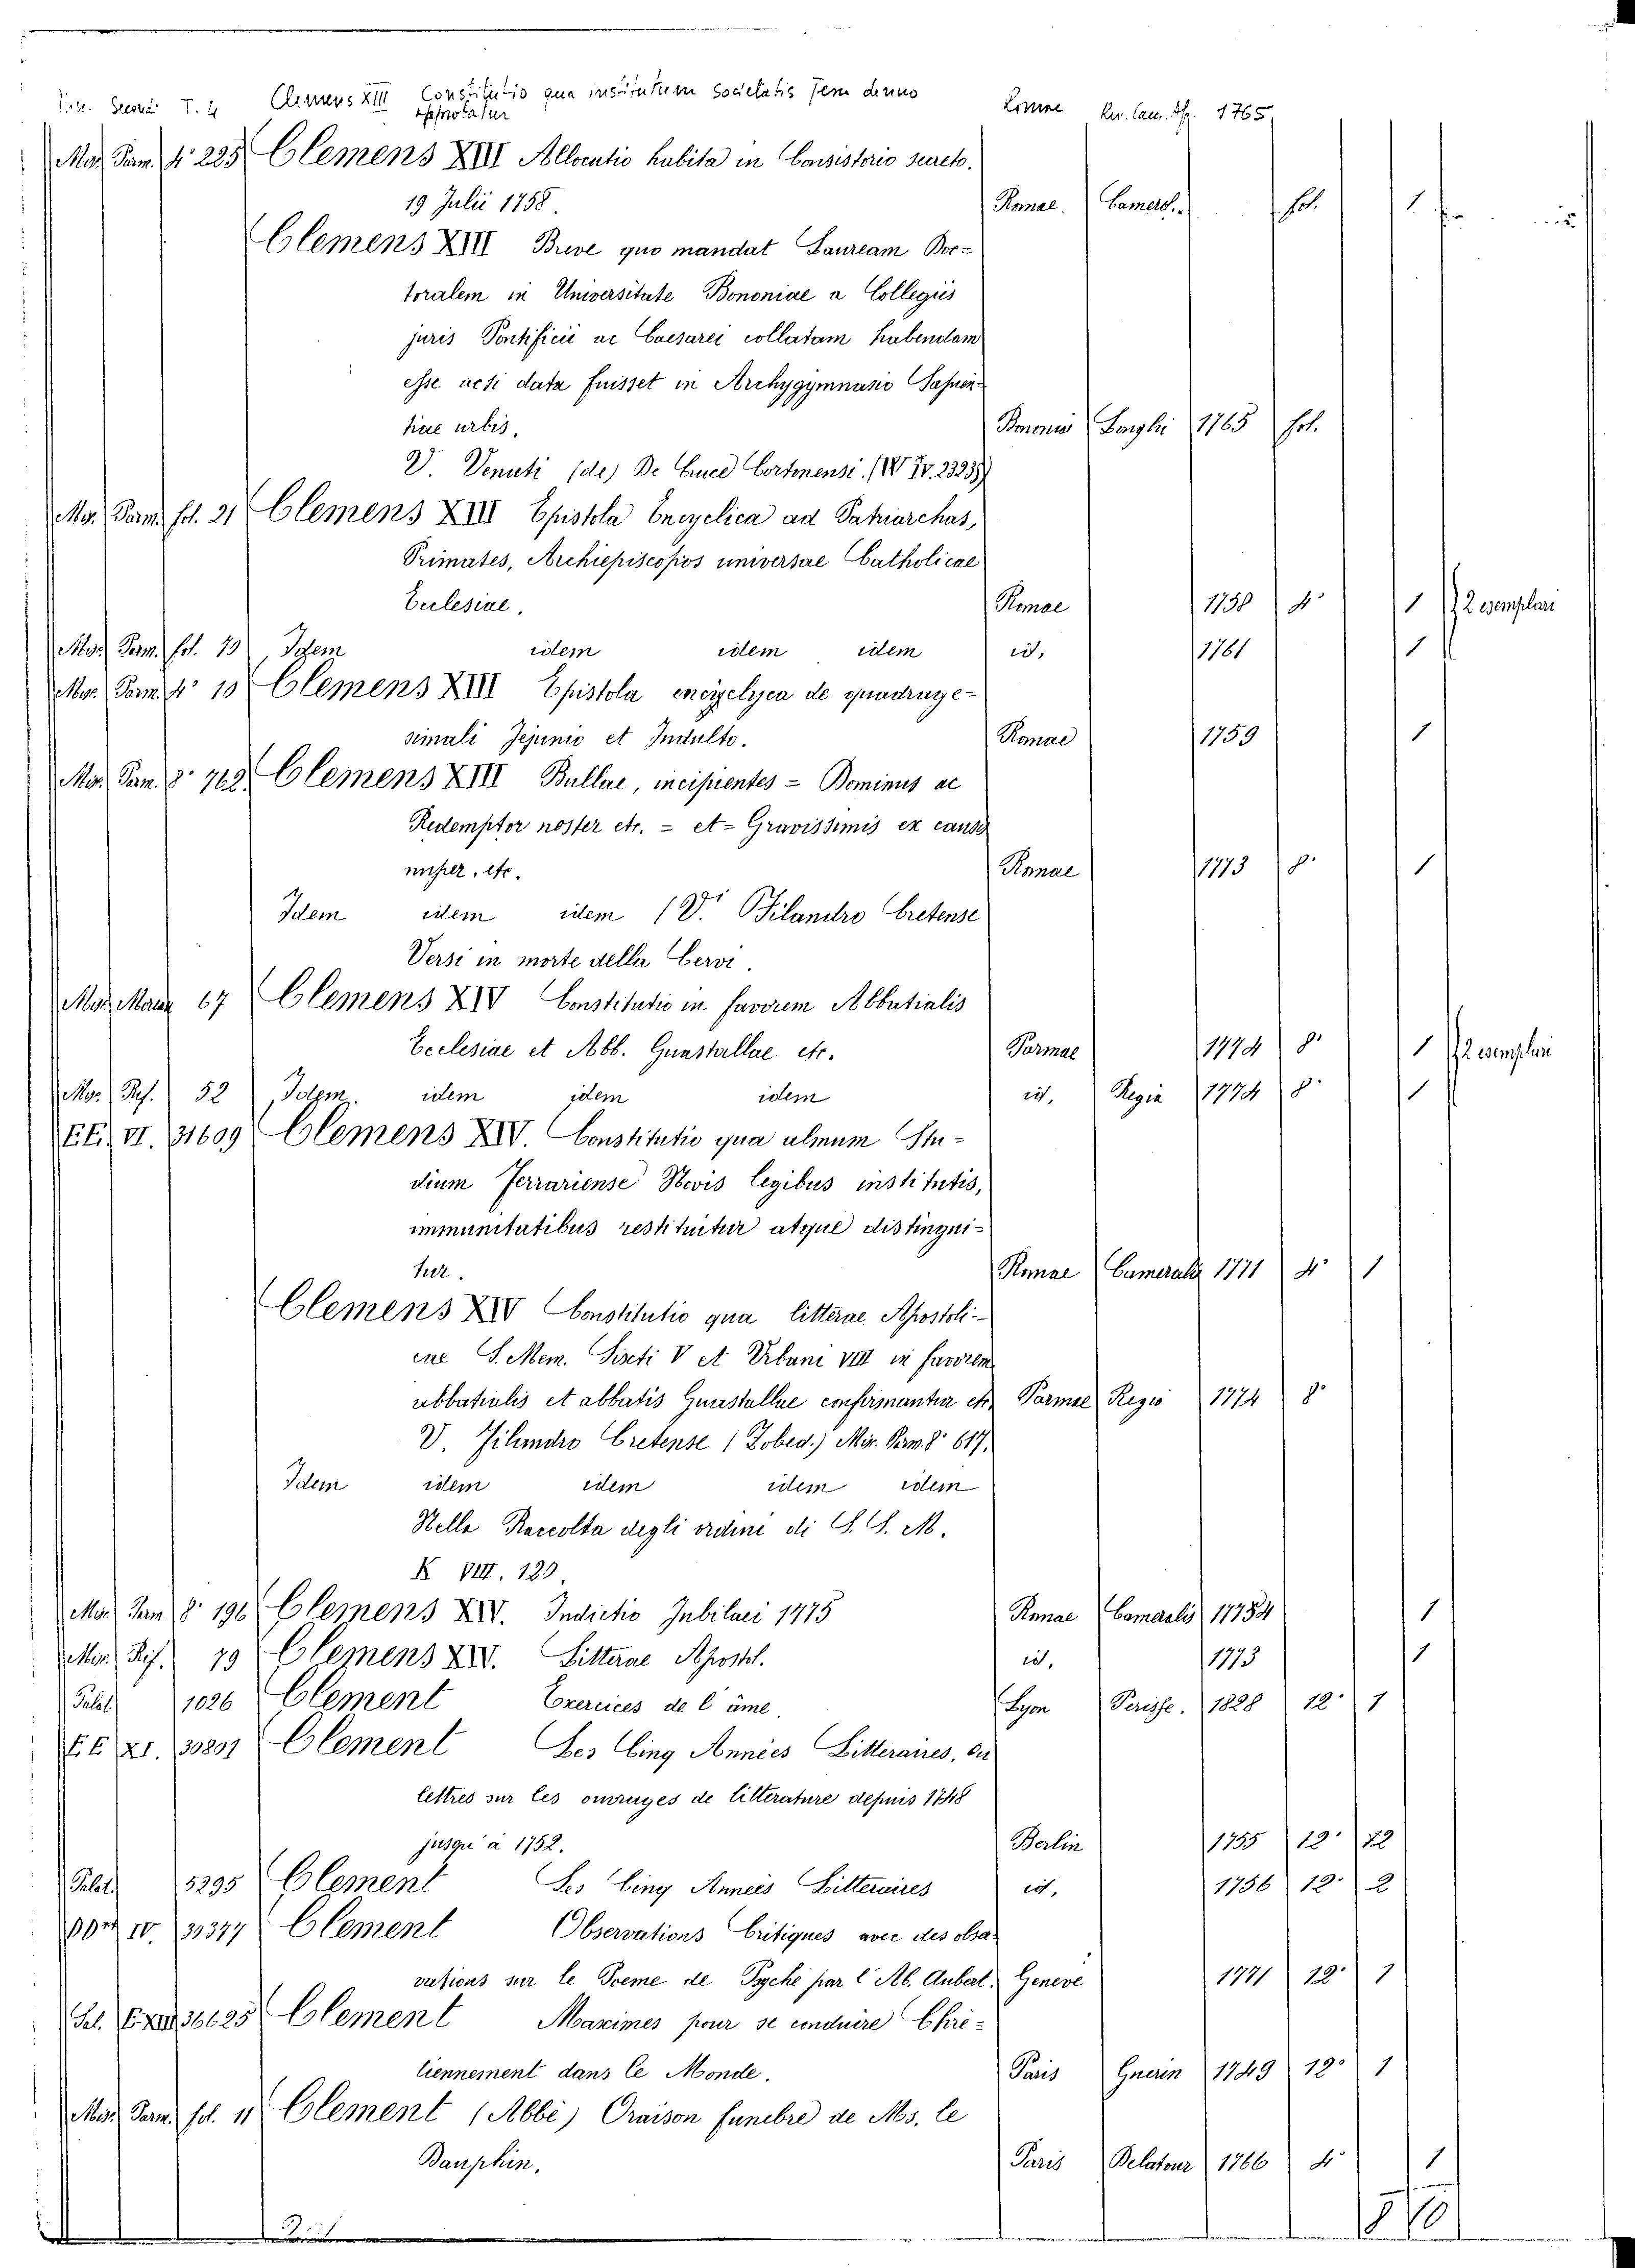 T. 4 Clemens XIII Constitutio qua institutum Societatis Jesu denuo Romae Rev. Cam. Ap. 1765
approbatur
Mis. Parm. 4° 225 Clemens XIII Allocutio habita in Consistorio secreto.
19 Julii 1758. Romae. Camera. fol. 1
Clemens XIII Breve quo mandat Lauream Doc=
toralem in Universitate Bononiae a Collegiis
juris Pontificii ac Caesarei collatam habendam
esse acsi data fuisset in Archygymnasio Sapien-
tiae urbis. Bononiae Longhi 1765 fol.
V. Venuti (de) De Cruce Cortonensi.
Mis. Parm. fol. 21 Clemens XIII Epistola Encyclica ad Patriarchas,
Primates, Archiepiscopos universae Catholicae
Ecclesiae. Romae 1758 4° 1 2 esemplari
Mis. Parm. fol. 19 Idem idem idem idem id. 1761 1
Mis. Parm. 4° 10 Clemens XIII Epistola encyclyca de quadrage=
simali Jejunio et Indulto. Romae 1759 1
Mis. Parm. 8° 762 Clemens XIII Bullae, incipientes = Dominus ac
Redemptor noster etc. = et = Gravissimis ex causis
nuper, etc. Romae 1773 8° 1
Idem idem idem (V. Filandro Cretense
Versi in morte della Cervi.
Mis. Manz 67 Clemens XIV Constitutio in favorem Abbatialis
Ecclesiae et Abb. Guastallae etc. Parmae 1774 8° 1 2 esemplari
Mis. Rif. 52 Idem. idem idem idem id. Regia 1774 8° 1
EE. VI. 31609 Clemens XIV. Constitutio qua almum Stu=
dium Ferrariense Novis legibus institutis,
immunitatibus restituitur atque distingui=
tur. Romae Cameralis 1771 4° 1
Clemens XIV Constitutio qua litterae Apostoli=
cae S. Mem. Sixti V et Urbani VIII in favorem
abbatialis et abbatis Guastallae confirmantur etc. Parmae Regio 1774 8°
V. Filandro Cretense (Zobed.) Mis. Parm. 8° 617.
Idem idem idem idem idem
Nella Raccolta degli ordini di S. S. M.
K VIII. 120
Mis. Parm. 8° 196 Clemens XIV. Indictio Jubilaei 1775 Romae Cameralis 1
Mis. Rif. 79 Clemens XIV. Litterae Apostol. id. 1773 1
Palat. 1026 Clement Exercices de l'âme. Lyon Perisse. 1828 12° 1
EE XI. 30891 Clement Les Cinq Années Litteraires, ou
lettres sur les ouvrages de litterature depuis 1748
jusqu'à 1752. Berlin 1755 12°
Palat. 5295 Clement Les Cinq Années Litteraires id. 1756 12° 2
IV. 30377 Clement Observations Critiques avec des obser
vations sur le Poeme de Psyché par l'Ab. Aubert. Geneve 1771 12° 1
Clement Maximes pour se conduire Chrê=
tiennement dans le Monde. Paris Guerin 1749 12° 1
Mis. Parm. fol. 11 Clement (Abbé) Oraison funebre de Ms. le
Dauphin. Paris Delatour 1766 4° 1